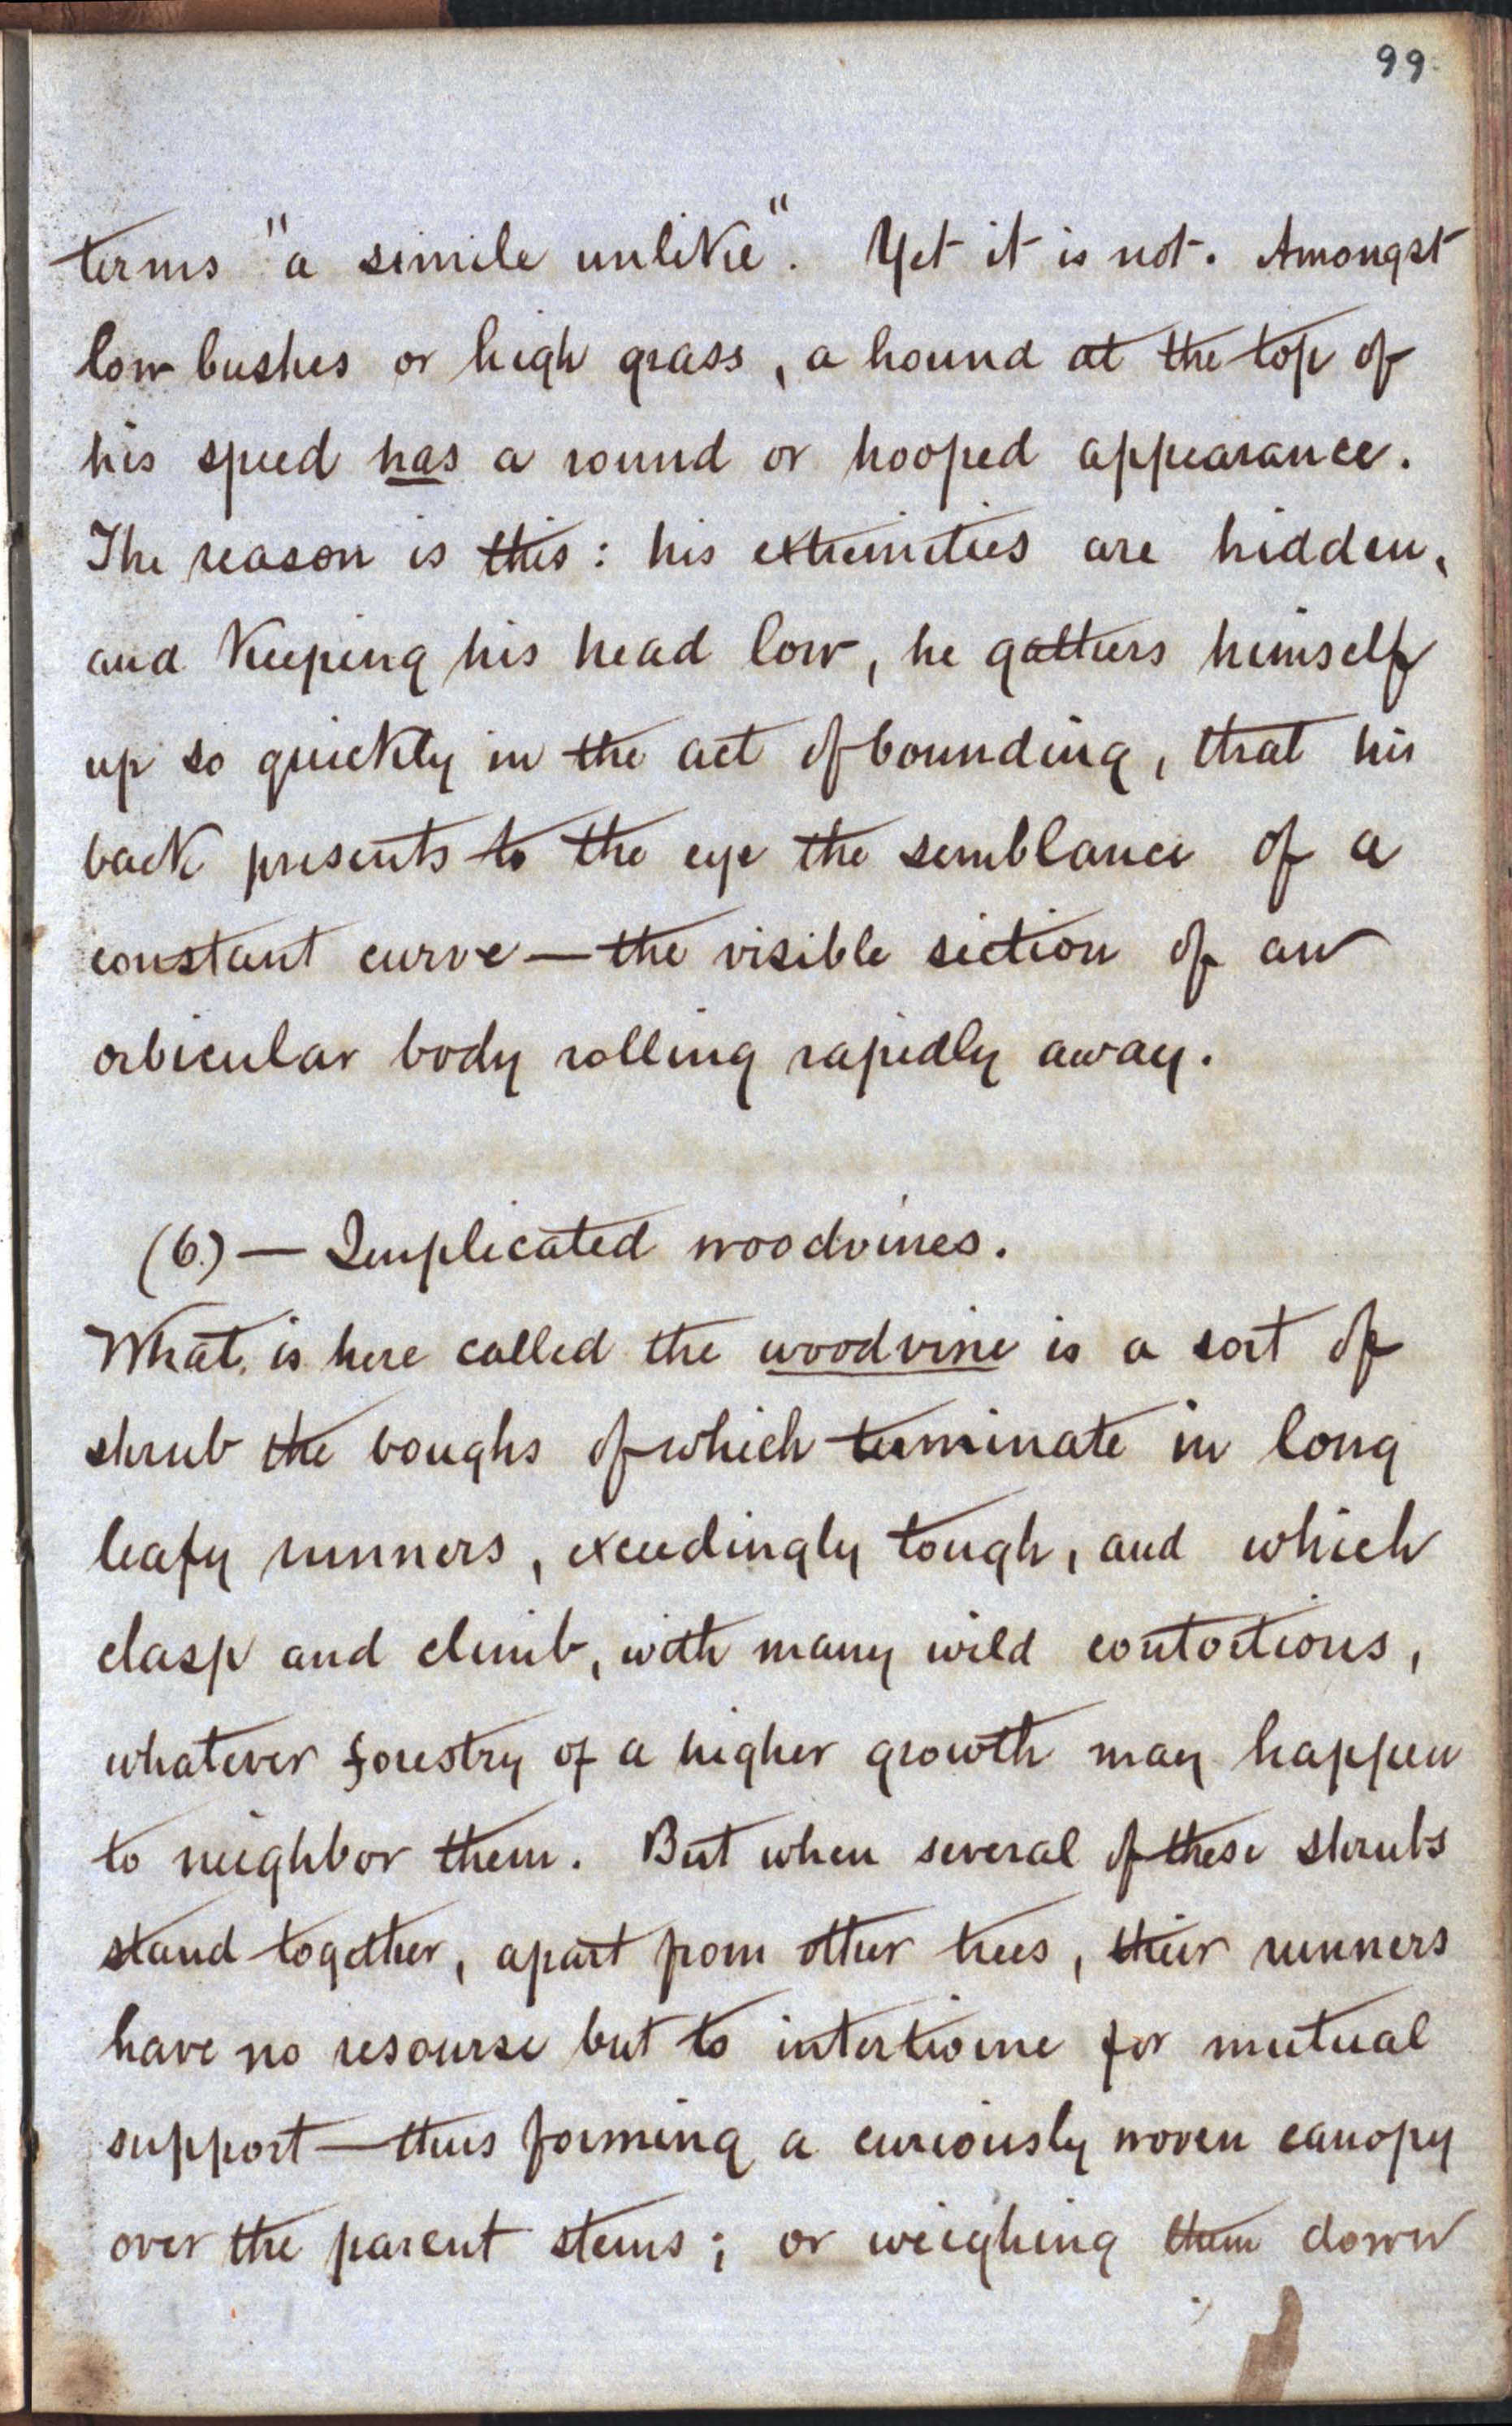 99.
terms "a simile unlike". Yet it is not. Amongst
low bushes or high grass, a hound at the top of
his speed has a round or hooped appearance.
The reason is this: his extremities are hidden,
and keeping his head low, he gathers himself
up so quickly in the act of bounding, that his
back presents to the eye the semblance of a
constant curve—the visible section of an
orbicular body rolling rapidly away.
(6.)— Implicated woodvines.
What is here called the woodvine is a sort of
shrub the boughs of which terminate in long
leafy runners, exceedingly tough, and which
clasp and climb, with many wild contortions,
whatever forestry of a higher growth may happen
to neighbor them. But when several of these shrubs
stand together, apart from other trees, their runners
have no resourse but to intertwine for mutual
support—thus forming a curiously woven canopy
over the parent stems; or weighing them down